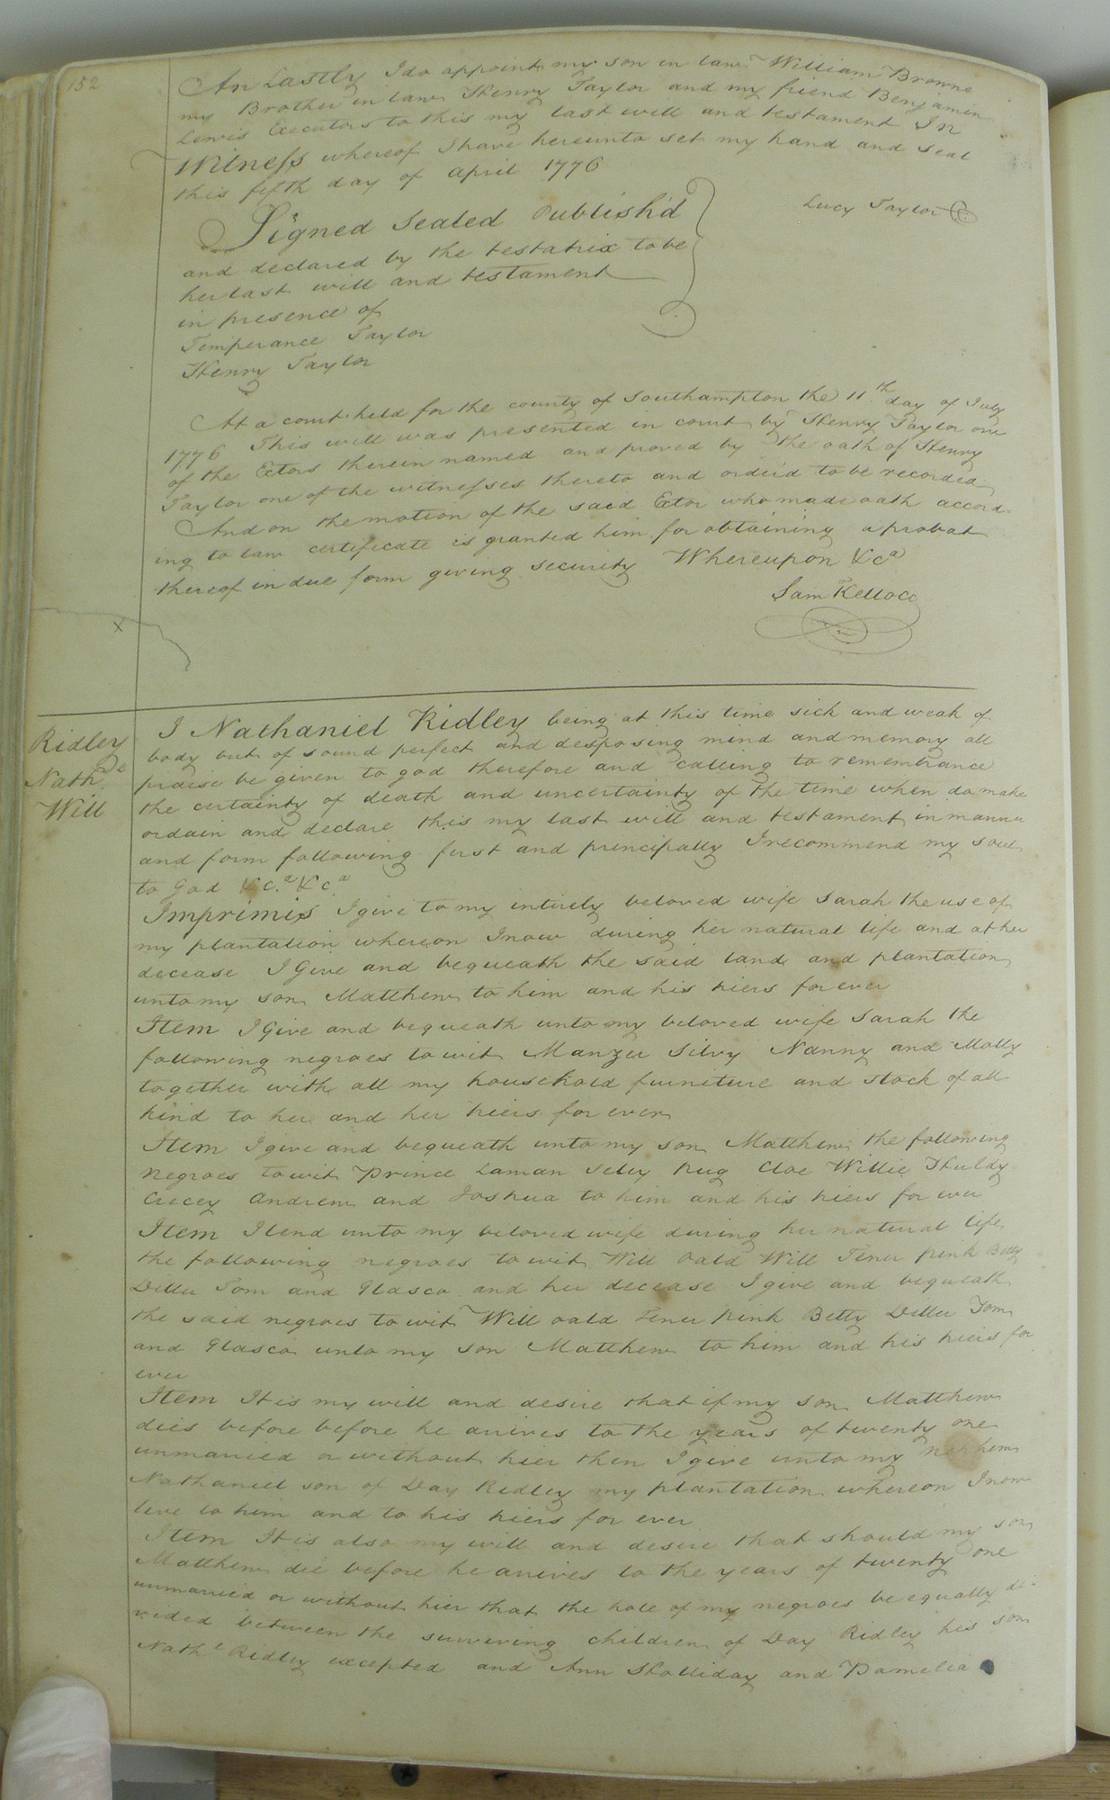 152
An Lastly I do appoint my son in law William Browne
my Brother in law Henry Taylor and my friend Benjamin
Lewis Executors to this my last will and testament In
Witness whereof I have hereunto set my hand and seal
this fifth day of april 1776
Lucy Taylor
Signed Sealed Publish'd
and declared by the testatrix to be
her last will and testament
in presence of
Temperance Taylor
Henry Taylor
At a court held for the county of Southampton the 11th day of July
1776 This will was presented in court by Henry Taylor one
of the Ectors therein named and proved by the oath of Henry
Taylor one of the witnesses thereto and order'd to be recorded
And on the motion of the said Ector who made oath accord
ing to law certificate is granted him for obtaining a probat
thereof in due form giving security Whereupon &ca
Sam Kello cc
x
Ridley
Nathl
Will
I Nathaniel Ridley being at this time sick and weak of
body but of sound perfect and desposing mind and memory all
praise be given to god therefore and calling to remembrance
the certainty of death and uncertainty of the time when do make
ordain and declare this my last will and testament in manner
and form following first and principally I recommend my soul
to God &c.a &c.a
Imprimis I give to my intirely beloved wife Sarah the use of
my plantation whereon I now during her natural life and at her
decease I Give and bequeath the said land and plantation
unto my son Matthew to him and his hiers for ever
Item I Give and bequeath unto my beloved wife Sarah the
following negroes to wit Manzer Silvy Nanny and Molly
together with all my household furniture and stock of all
kind to her and her hiers for ever
Item I give and bequeath unto my son Matthew the following
Negroes to wit Prince Laman Seley Pug Cloe Willie Huldy
Crecy Andrew and Joshua to him and his hiers for ever
Item I lend unto my beloved wife during her natural life
the following negroes to wit Will oald Will Fener pink Betty
Diller Tom and Glasco and her decease I give and bequeath
the said negroes to wit Will oald Fener Pink Betty Diller Tom
and Glasco unto my son Matthew to him and his hiers for
ever
Item It is my will and desire that if my son Matthew
dies before before he arives to the years of twenty one
unmarried or without hier then I give unto my nephew
Nathaniel son of Day Ridley my plantation whereon I now
live to him and to his hiers for ever
Item It is also my will and desire that should my son
Matthew die before he arives to the years of twenty one
unmarried or without hier that the hole of my negroes be equally di-
vided between the surviving children of Day Ridley his son
Nathl Ridley excepted and Ann Holliday and Pamelia